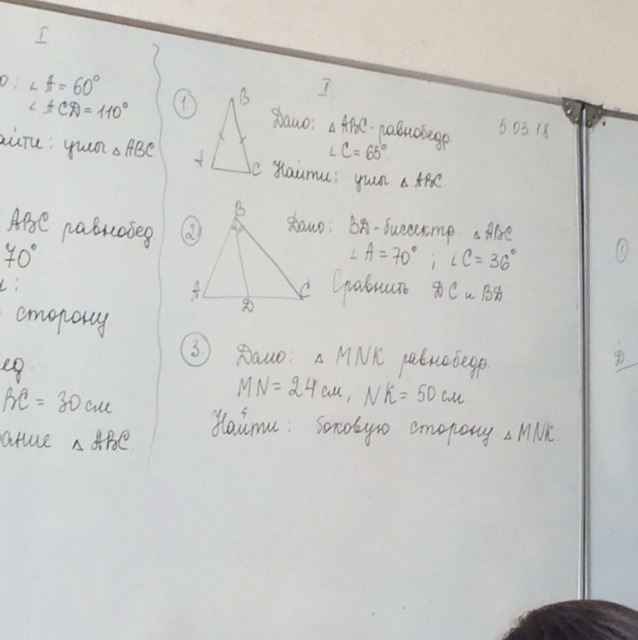 I
∠A = 60°
∠ACD = 110°
углы △ABC
ABC равнобед
70°
сторону
BC = 30 см
△ABC
II
5.03.18
① B A C
Дано: △ABC - равнобедр.
∠C = 65°
Найти: углы △ABC.
② B A D C
Дано: BD - биссектр. △ABC
∠A = 70° ; ∠C = 36°
Сравнить DC и BD
③ Дано: △MNK равнобедр.
MN = 24 см, NK = 50 см
Найти: боковую сторону △MNK.